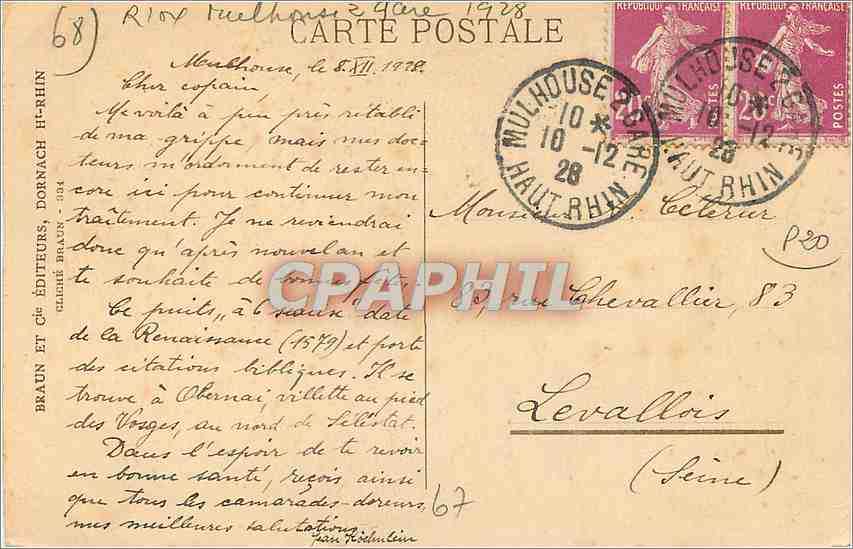 68) Mulhouse 2 gare 1928
CARTE POSTALE
Mulhouse, le 8.XII.1928.
Cher copain,
Me voilà à peu près rétabli
de ma grippe, mais mes doc-
teurs m'ordonnent de rester en-
core ici pour continuer mon
traîtement. Je ne reviendrai
donc qu'après nouvel an et
te souhaite de bonnes fêtes.
Ce puits „à 6 seaux" date
de la Renaissance (1579) et porte
des citations bibliques. Il se
trouve à Obernai, villette au pied
des Vosges, au nord de Séléstat.
Dans l'espoir de te revoir
en bonne santé, reçois ainsi
que tous les camarades-doreurs,
mes meilleures salutations
Jean Koechnlein
67
BRAUN ET Cie ÉDITEURS, DORNACH Ht-RHIN
CLICHÉ BRAUN - 334
RÉPUBLIQUE FRANÇAISE
20c
POSTES
RÉPUBLIQUE FRANÇAISE
20c
POSTES
MULHOUSE 2 GARE
10 *
10 -12
28
HAUT-RHIN
MULHOUSE 2 GARE
10 *
10 -12
28
HAUT-RHIN
Monsieur Ceterur
P20
83, rue Chevallier, 83
Levallois
(Seine)
CPAPHIL